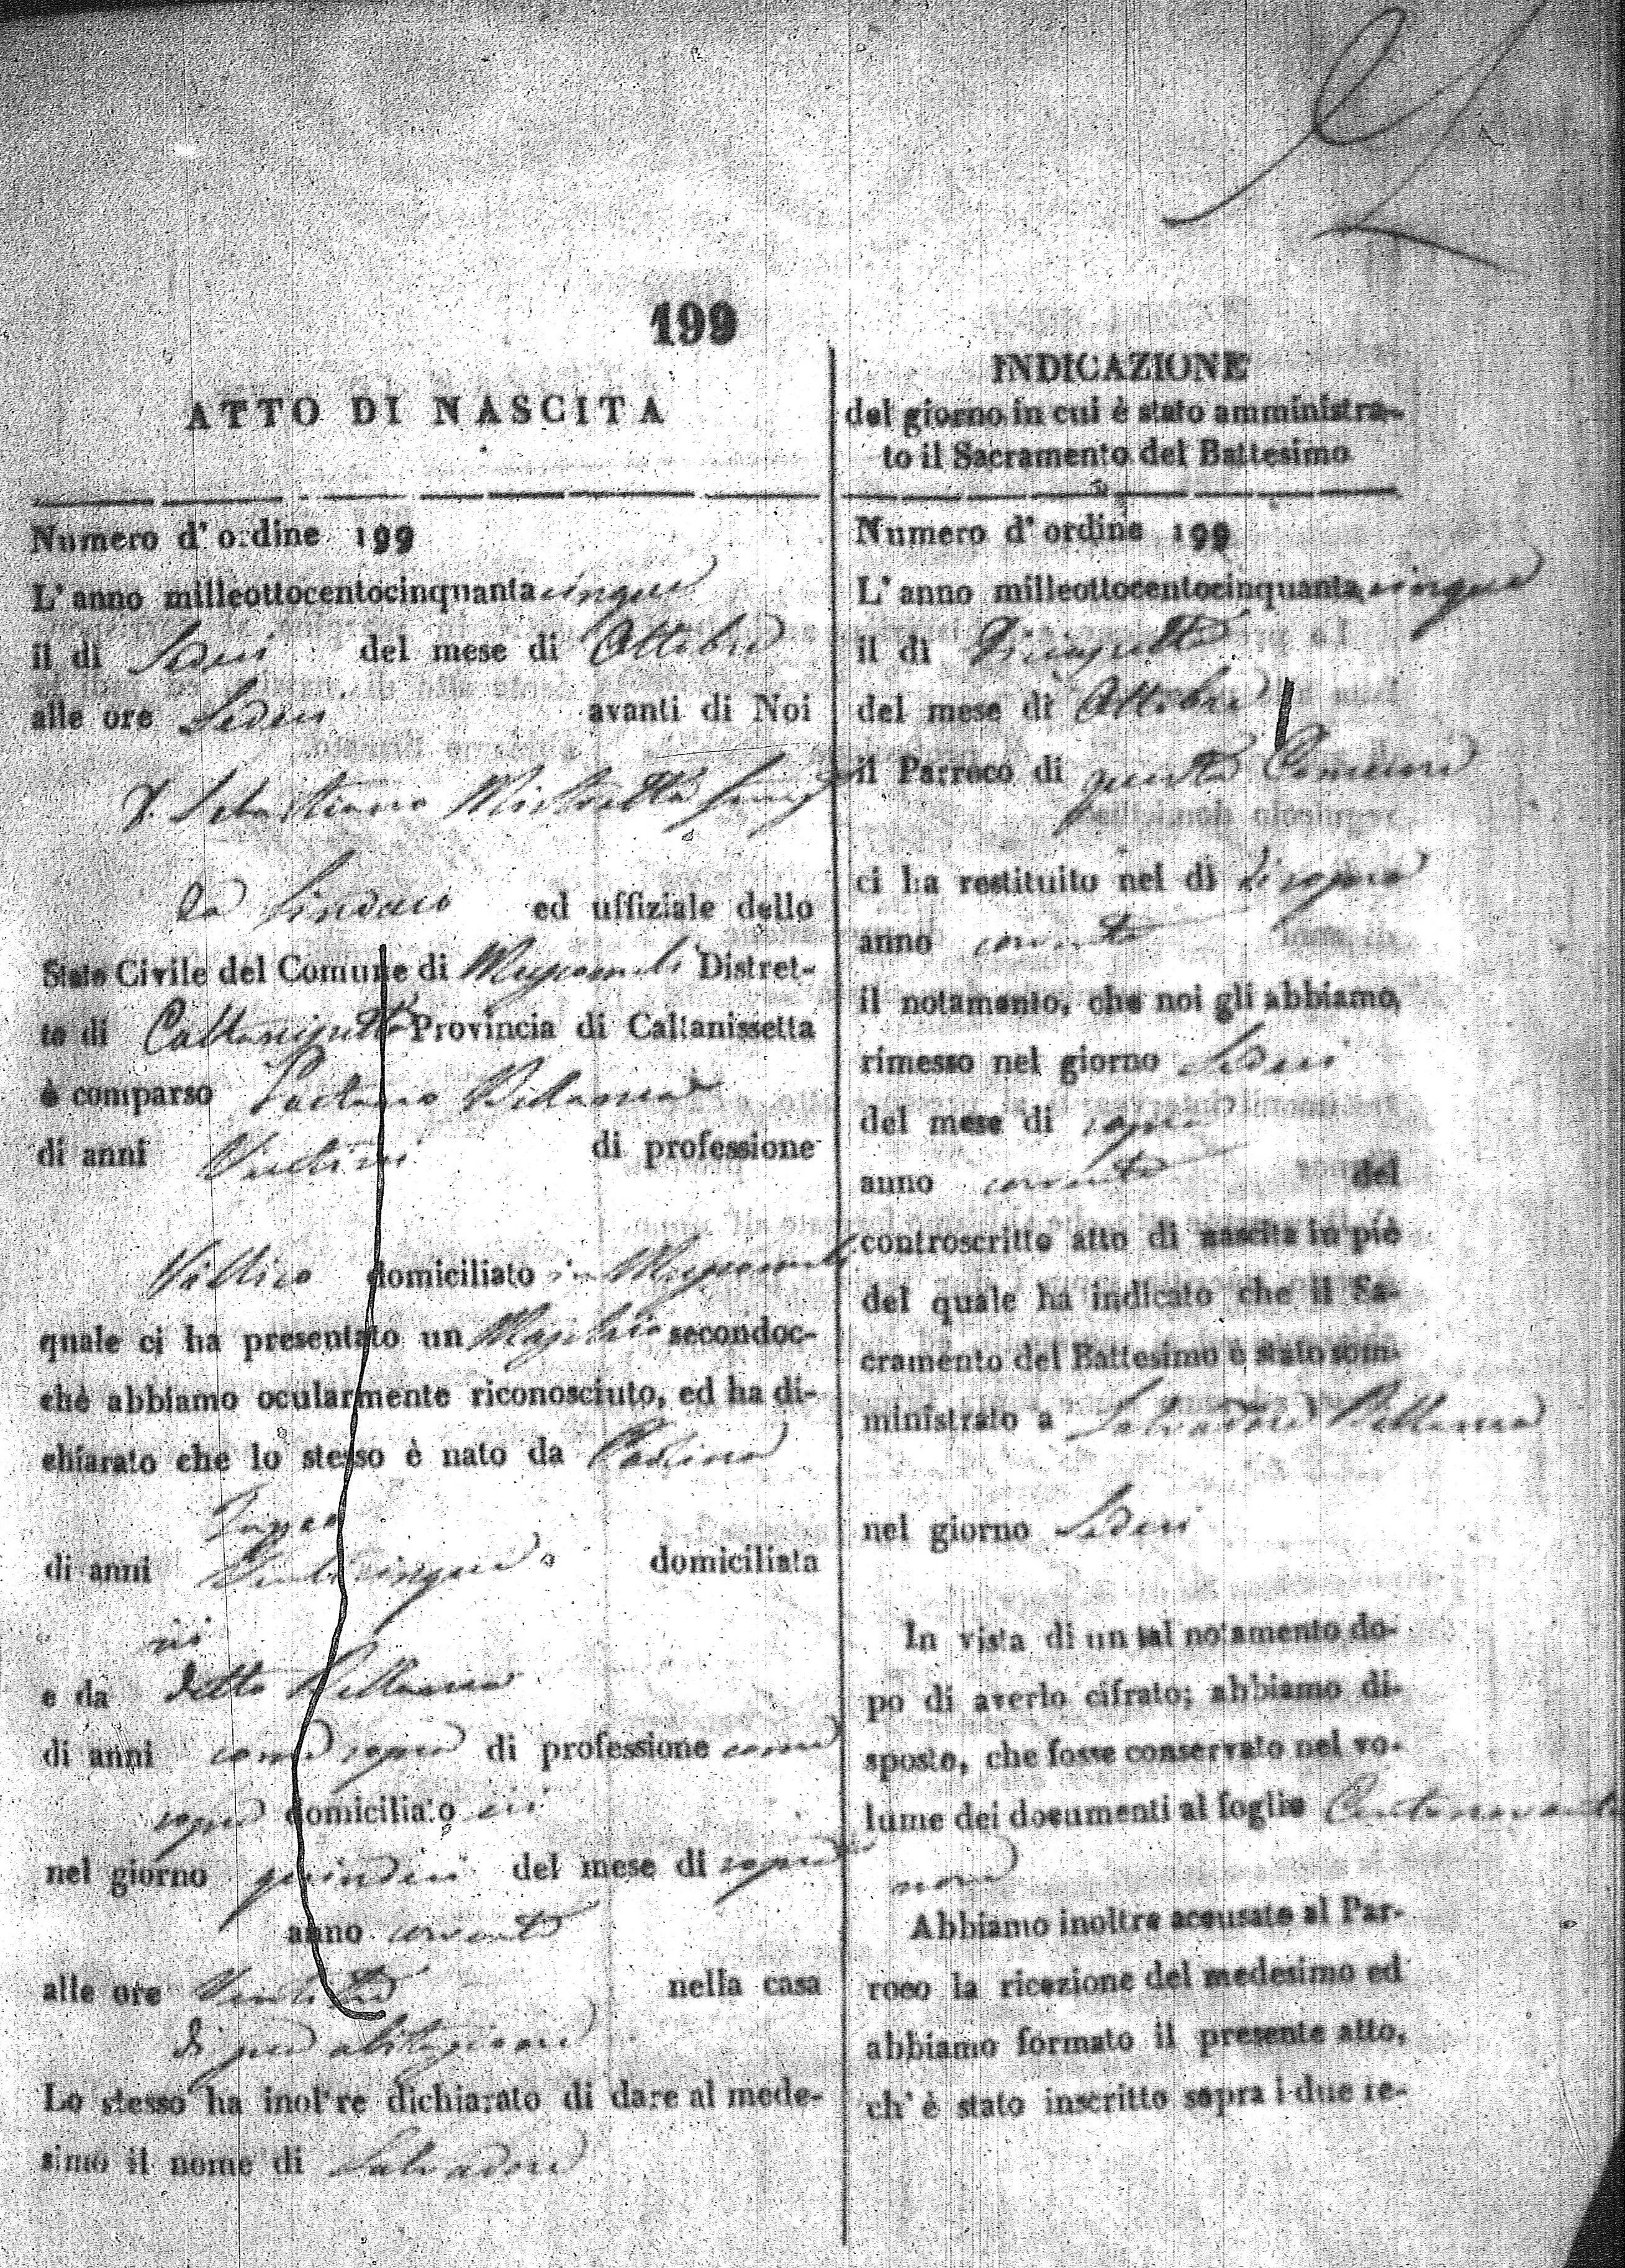 199
ATTO DI NASCITA
Numero d'ordine 199
L'anno milleottocentocinquantacinque
il dì Sedici del mese di Ottobre
alle ore Sedici avanti di Noi
D. Sebastiano Mistretta
da Sindaco ed uffiziale dello
Stato Civile del Comune di Mussomeli Distret-
to di Caltanissetta Provincia di Caltanissetta
è comparso Gaetano Bellanca
di anni di professione
Villico domiciliato in Mussomeli
quale ci ha presentato un Maschio secondoc-
chè abbiamo ocularmente riconosciuto, ed ha di-
chiarato che lo stesso è nato da
di anni Venticinque domiciliata
ivi
e da detto Bellanca
di anni come sopra di professione come
sopra domiciliato ivi
nel giorno quindici del mese di sopra
anno corrente
alle ore nella casa
di sua abitazione
Lo stesso ha inoltre dichiarato di dare al mede-
simo il nome di Salvadore
INDICAZIONE
del giorno in cui è stato amministra-
to il Sacramento del Battesimo
Numero d'ordine 199
L'anno milleottocentocinquantacinque
il dì Diciassette
del mese di Ottobre
il Parroco di questa Comune
ci ha restituito nel dì di sopra
anno corrente
il notamento, che noi gli abbiamo
rimesso nel giorno Sedici
del mese di sopra
anno corrente del
controscritto atto di nascita in piè
del quale ha indicato che il Sa-
cramento del Battesimo è stato som-
ministrato a Salvadore Bellanca
nel giorno Sedici
In vista di un tal notamento do-
po di averlo cifrato; abbiamo di-
sposto, che fosse conservato nel vo-
lume dei documenti al foglio Centonovanta
nove
Abbiamo inoltre accusato al Par-
roco la ricezione del medesimo ed
abbiamo formato il presente atto,
ch'è stato inscritto sopra i due re-